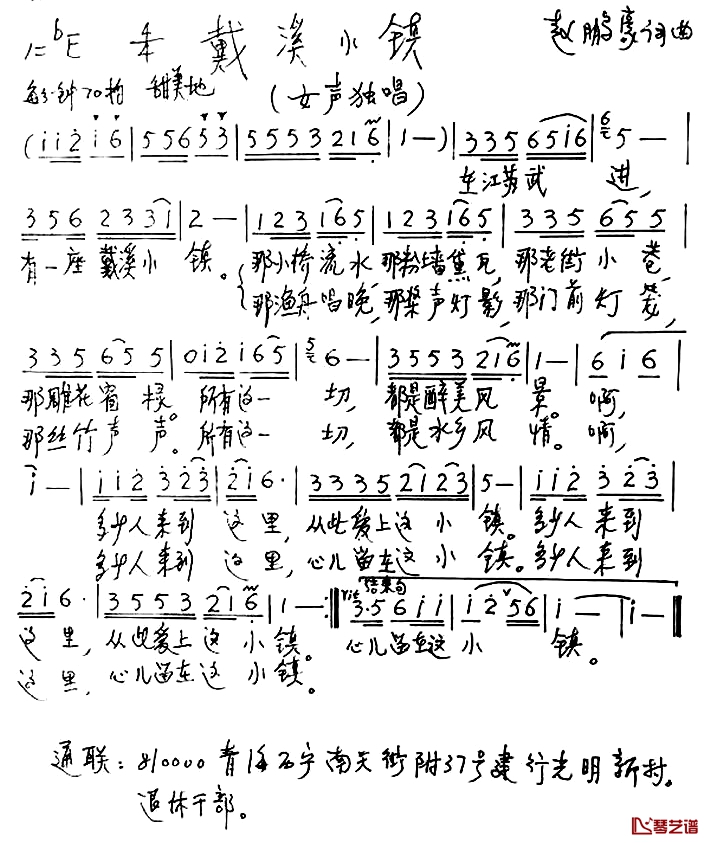 1=ᵇE 2/4 戴溪小镇 赵鹏豪词曲
每分钟70拍 甜美地 (女声独唱)
(i i 2 i 6 | 5 5 6 5 3 | 5 5 5 3 2 1 6 | 1 —) | 3 3 5 6 5 i 6 | 5 — |
在江苏武 进,
3 5 6 2 3 3 1 | 2 — | 1 2 3 1 6 5 | 1 2 3 1 6 5 | 3 3 5 6 5 5 |
有一座 戴溪小 镇。 那小桥流水,那粉墙黛瓦,那老街小 巷,
那渔舟唱晚,那桨声灯影,那门前灯 笼,
3 3 5 6 5 5 | 0 i 2 i 6 5 | 6 — | 3 5 5 3 2 1 6 | 1 — | 6 i 6 |
那雕花窗 棂。所有这一 切, 都是醉美风 景。 啊,
那丝竹声 声。所有这一 切, 都是水乡风 情。 啊,
i — | i i 2 3 2 3 | 2 i 6 · | 3 3 3 5 2 1 2 3 | 5 — | i i 2 3 2 3 |
多少人来到 这里, 从此爱上这 小 镇。多少人 来到
多少人来到 这里, 心儿留在这 小 镇。多少人 来到
2 i 6 · | 3 5 5 3 2 1 6 | 1 — :‖ rit 结束句 3 · 5 6 i i | i 2 5 6 | i — | i — ‖
这 里, 从此爱上 这 小 镇。 心儿留在这 小 镇。
这 里, 心儿留在 这 小 镇。
通联:810000青海西宁南关街附37号建行光明新村。
退休干部。
琴艺谱